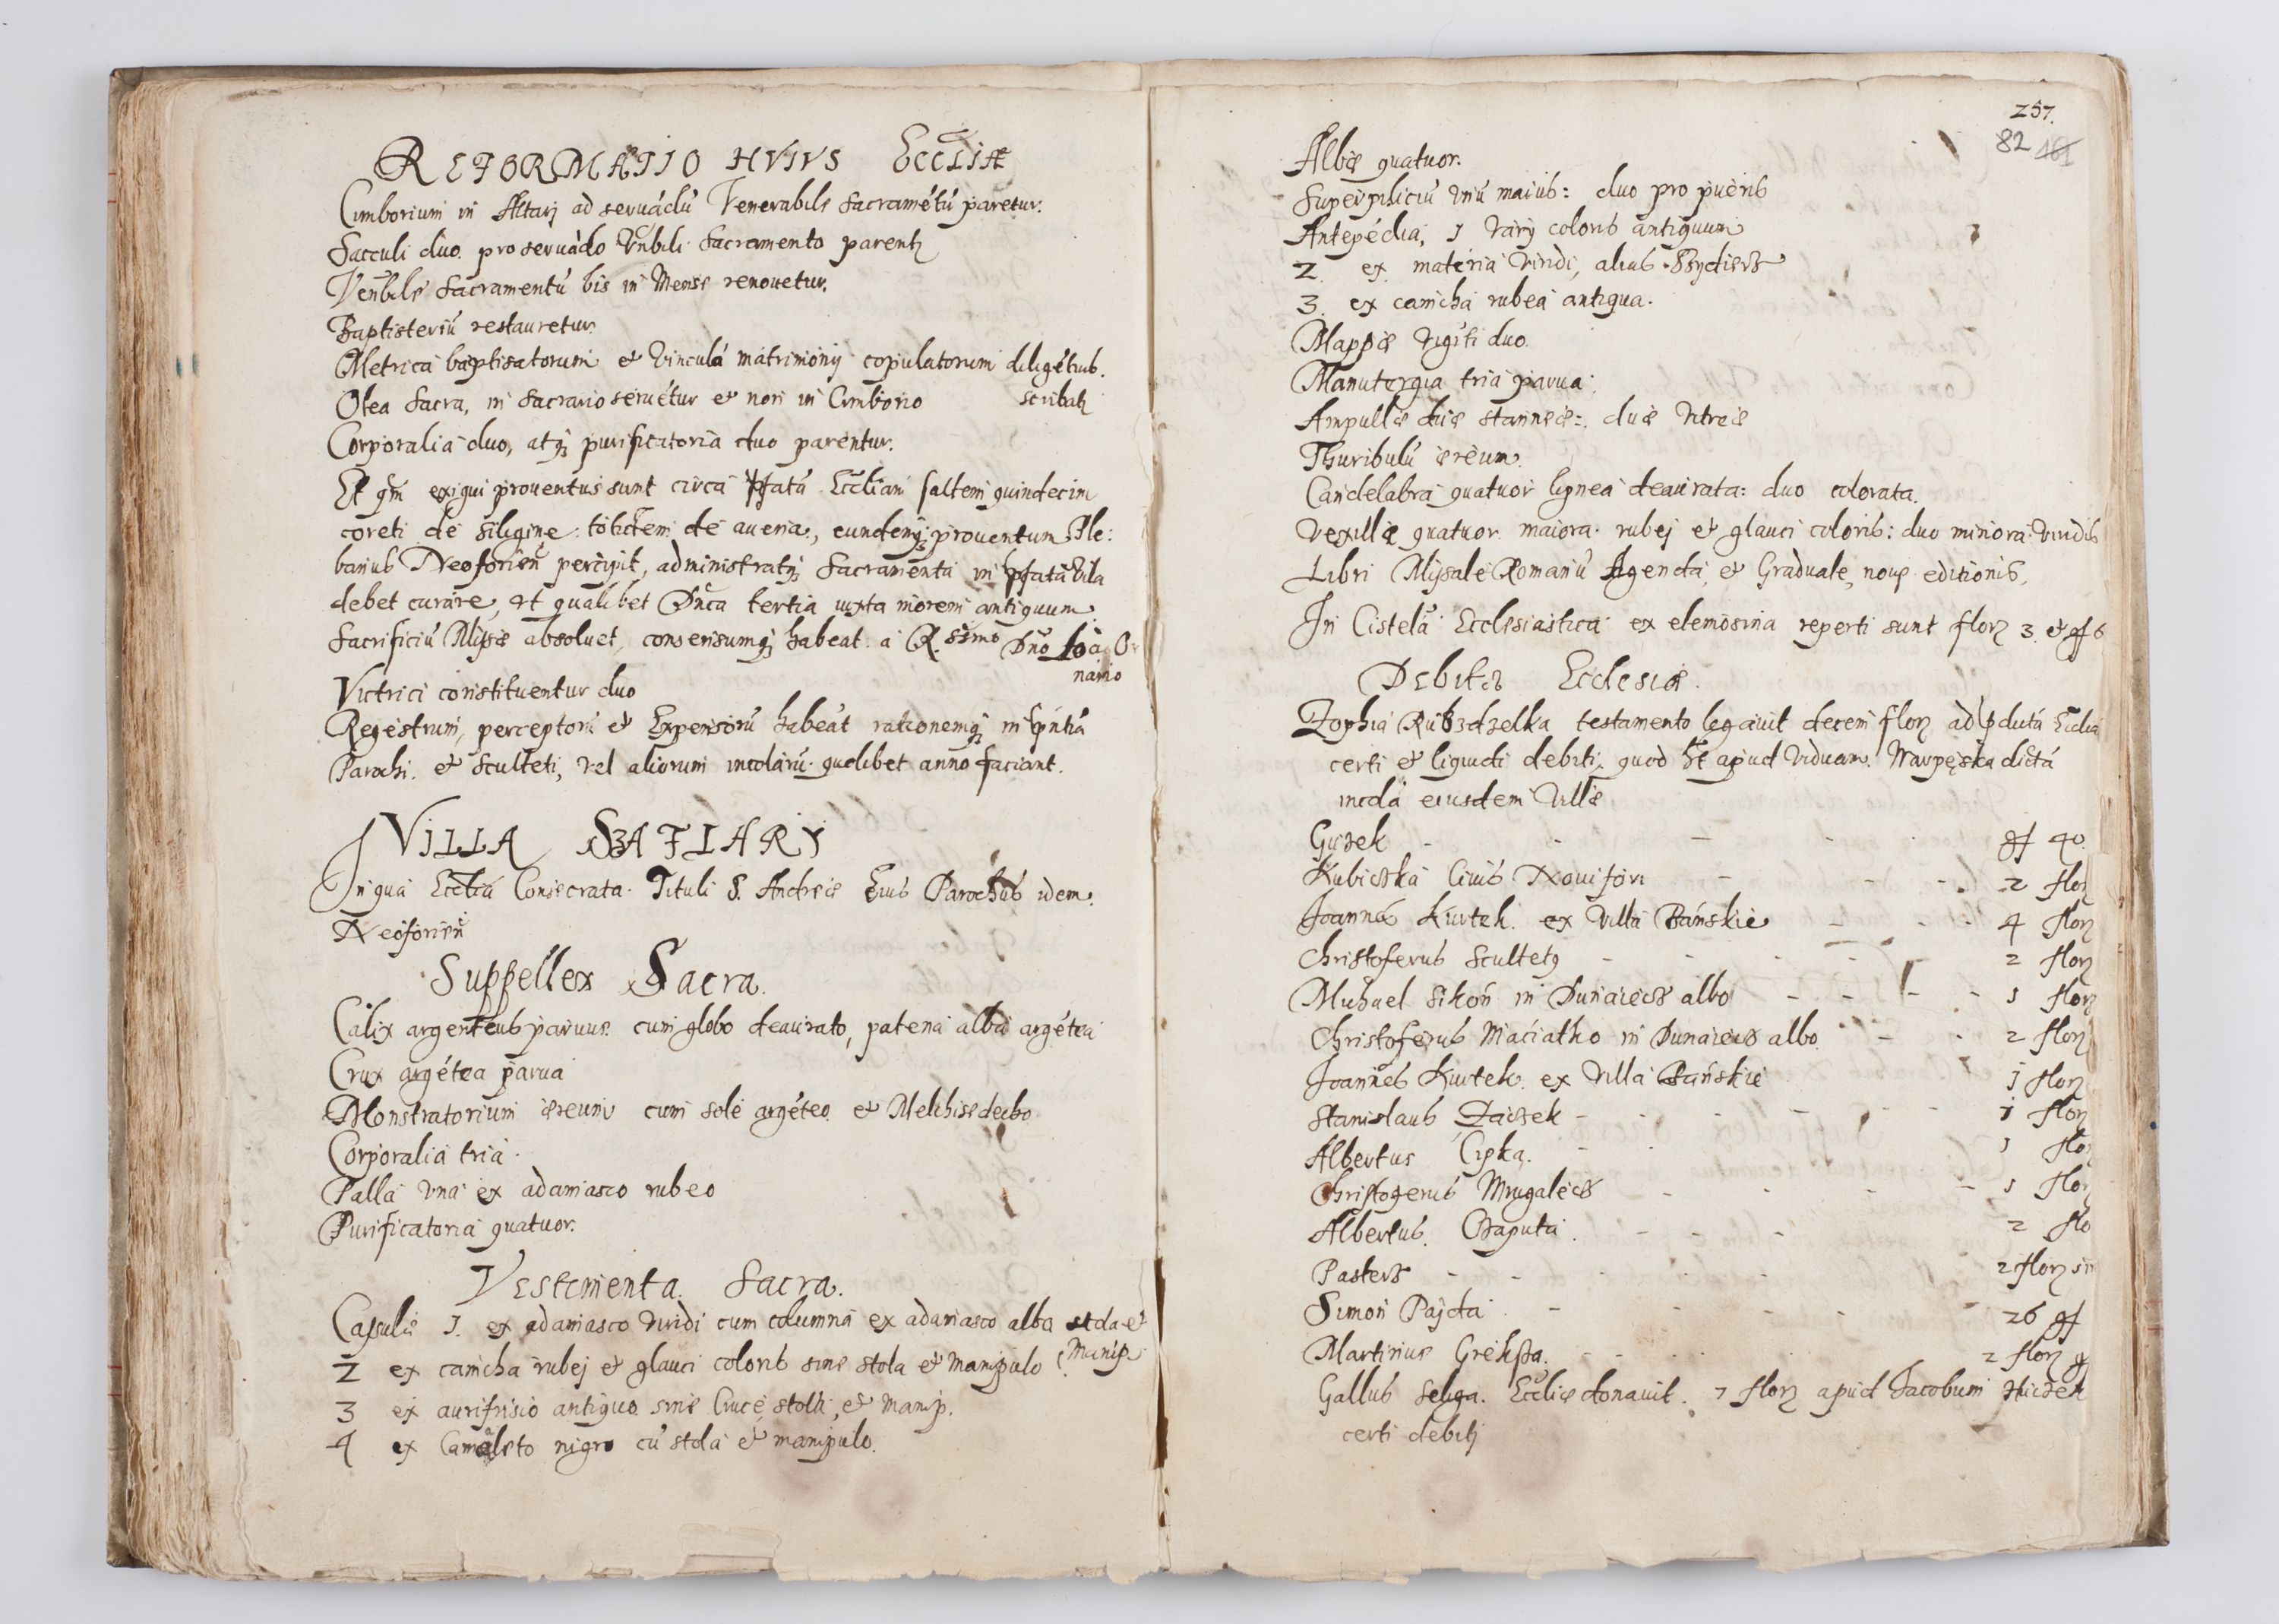 REFORMATIO HVIVS Eccliæ
Cimborium in Altarj ad seruãdũ Venerabile Sacramẽtũ paretur.
Sacculi duo pro seruãdo Vnbili Sacramento parentz
Venbile Sacramentũ bis in Mense renouetur.
Baptisteriũ restauretur.
Metrica baptisatorum et vincula matrimonij copulatorum diligẽtius.
scribatz
Olea Sacra, in sacrario seruẽtur et non in Cimborio
Corporalia duo, atqz purificatoria duo parentur.
Et qm̃ exigui prouentus sunt circa pfatã Eccliam saltem quindecim
coreti de siligine totidem de auena, eundemqz prouentum Ple:
banus Neoforien̄ percipit, administratqz Sacramenta in pfata Villa
debet curare, et qualibet Dñca tertia iuxta morem antiquum
Sacrificiũ Missæ absoluet, consensumqz habeat a R.ssmo Dño Loci Or
nario
Victrici constituentur duo
Regestrum, perceptorũ et Expensorũ habeãt rationemqz in pñtia
Parochi. et Sculteti, vel aliorum incolarũ quolibet anno faciant.
VILLA SZAFLARY
In qua Ecclia Consecrata Tituli S. Andreæ Eius Parochus idem.
Neoforien̄
Suppellex Sacra.
Calix argenteus paruus cum globo deaurato, patena alba argẽtea
Crux argẽtea parua
Monstratorium æreum cum sole argẽteo et Melchisedecho
Corporalia tria.
Palla vna ex adamasco rubeo
Purificatoria quatuor.
Vestimenta Sacra.
Casulæ 1. ex adamasco viridi cum columna ex adamasco albo stola et
Manip.
2 ex camcha rubej et glauci coloris sine stola et Manipulo
3 ex aurifrisio antiquo sine Cruce, stola, et Manip.
4 ex Camaleto nigro cũ stola et manipulo.
257.
82 161
Albæ quatuor.
Superpiliciũ vnũ maius: duo pro pueris
Antepẽdia, 1 varij coloris antiquum
2. ex materia viridi, alias
3. ex camcha rubea antiqua.
Mappæ vigĩti duo.
Manutergia tria parua.
Ampullæ duæ stanneæ: duæ vitreæ
Thuribulũ æreum.
Candelabra quatuor lignea deaurata: duo colorata.
Vexilla quatuor maiora rubej et glauci coloris: duo minora viridis
Libri Missale Romanũ Agenda, et Graduale, nouæ editionis,
In Cistela Ecclesiastica ex elemosina reperti sunt florz 3. et gf 6
Debita Ecclesiæ.
Zophia Rubzdzelka testamento legauit decem florz ad pdictã Eccliã
certi et liquidi debiti, quod st apud viduam. dictã
incolã eiusdem Villæ
Guzek - gf 40.
Kubiczka Ciuis Nouifori - 2 florz
Joannes Kurtek. ex Villa Bańskie - 4 florz
Christoferus Scultetq - 2 florz
Michael Sikoń in Dunaiecz albo - 1 florz
Christoferus Maciatko in Dunaiecz albo - 2 florz
Joannes Kurtek ex Villa Bańskie 1 florz
Stanislaus Zaczek - 1 florz
Albertus Cipka. - 1 florz
Christoferus Mrugalecz - 1 florz
Albertus. Czaputa. - 2 flo
Pasterz - 2 florz
Simon Pajda - 26 gf
Martinus - 2 florz
Gallus Seliga. Eccliæ donauit. 7 florz apud Jacobum
certi debitj